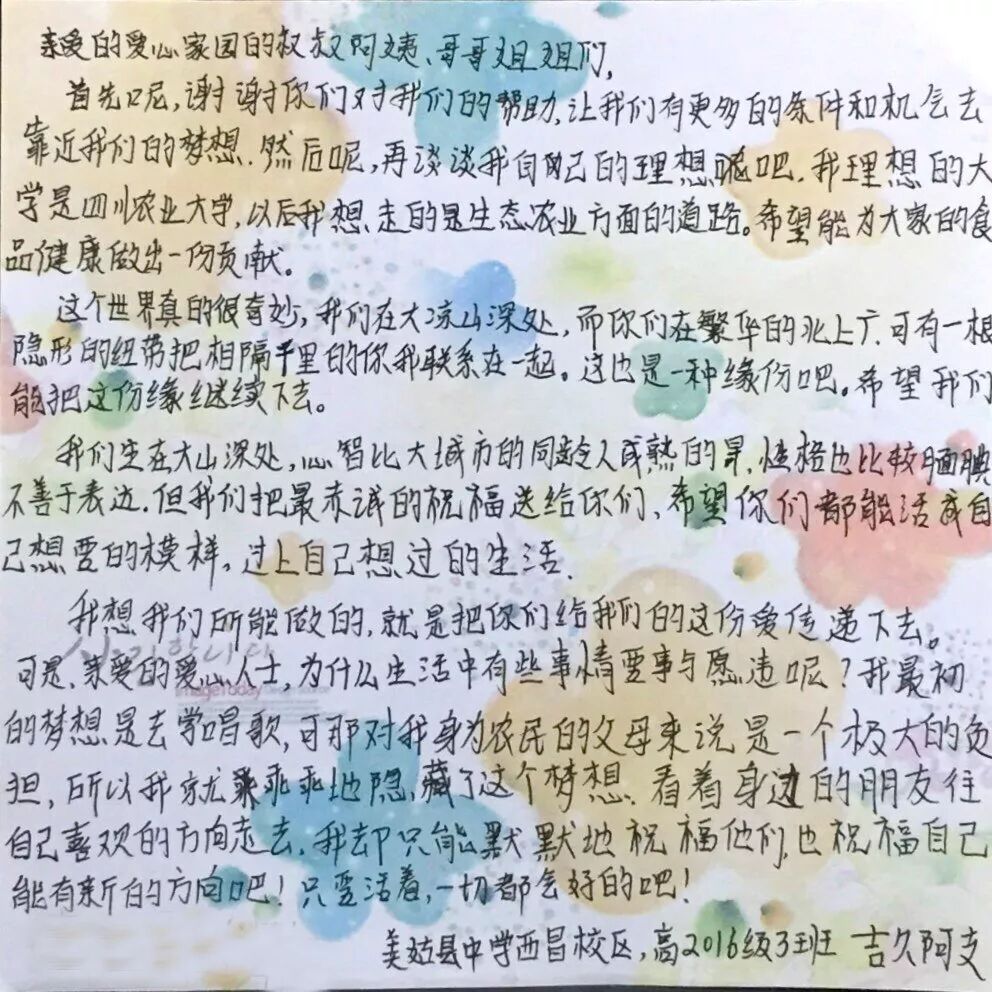 亲爱的爱心家园的叔叔阿姨、哥哥姐姐们,
首先呢,谢谢你们对我们的帮助,让我们有更多的条件和机气去
靠近我们的梦想.然后呢,再谈谈我自己的理想吧.我理想的大
学是四川农业大学,以后我想走的是生态农业方面的道路。希望能为大家的食
品健康做出一份贡献.
这个世界真的很奇妙,我们在大凉山深处,而你们在繁华的北上广.可有一根
隐形的纽带把相隔千里的你我联系在一起。这也是一种缘份吧。希望我们
能把这份缘继续下去。
我们生在大山深处,心智比大城市的同龄人成熟的早,性格也比较腼腆
不善于表达.但我们把最赤诚的祝福送给你们、希望你们都能活成自
己想要的模样,过上自己想过的生活.
我想我们所能做的,就是把你们给我们的这份爱传递下去。
可是,亲爱的爱心人士,为什么生活中有些事情要事与愿违呢?我最初
ImageToday
的梦想是去学唱歌,可那对我身为农民的父母来说是一个极大的负
担,所以我就乖乖地隐藏了这个梦想.看着身边的朋友往
自己喜欢的方向走去,我却只能默默地祝福他们,也祝福自己
能有新的方向吧!只要活着,一切都会好的吧!
美姑县中学西昌校区,高2016级3班 吉久阿支